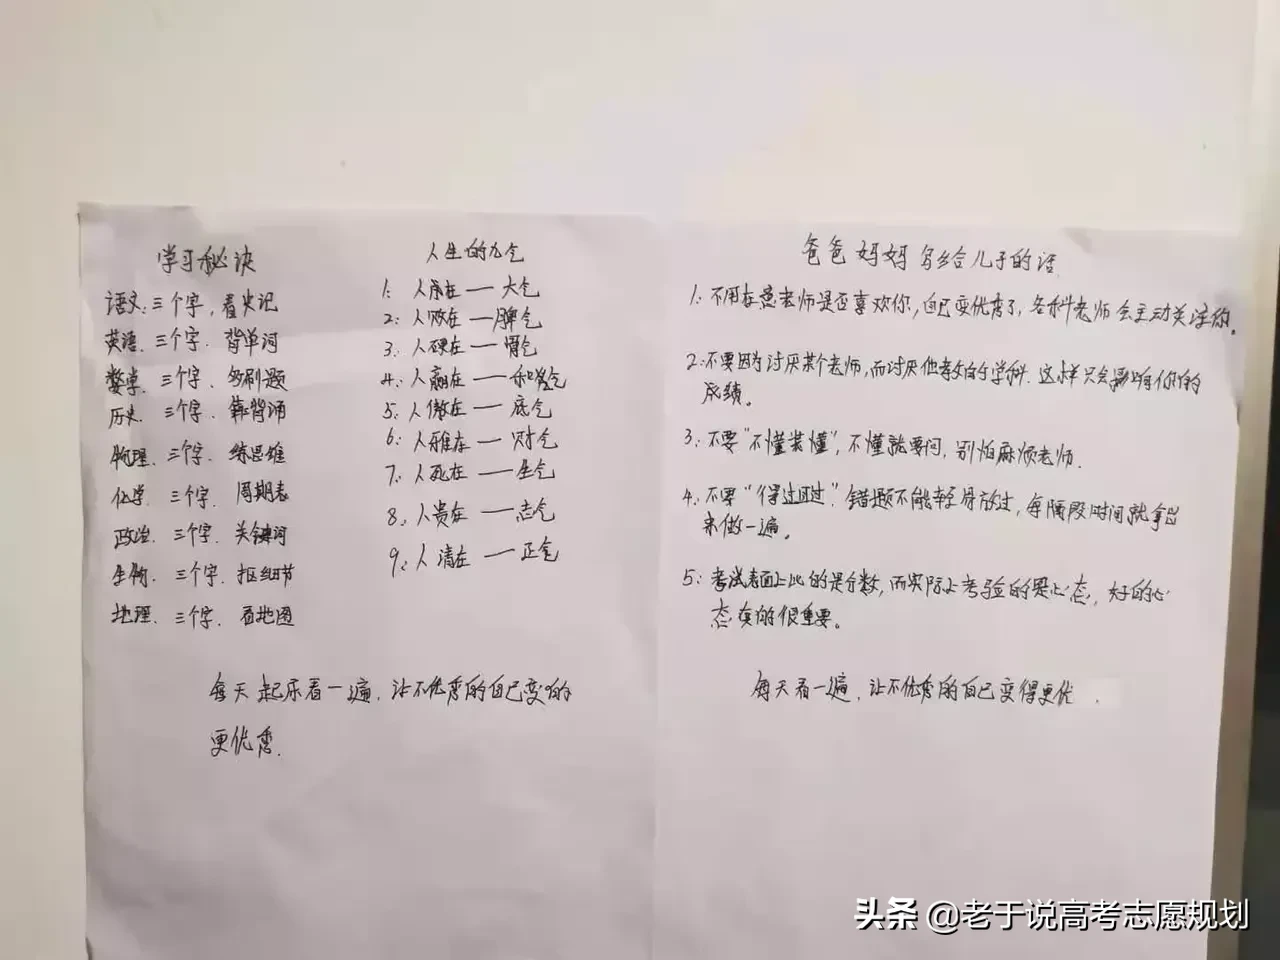 学习秘诀
语文:三个字,看史记
英语.三个字.背单词
数学.三个字.多刷题
历史.三个字.靠背诵
物理.三个字.练思维
化学.三个字.周期表
政治.三个字.关键词
生物.三个字.抠细节
地理.三个字.看地图
人生的九气
1:人存在——大气
2:人败在——脾气
3:人硬在——骨气
4:人赢在——和气
5:人傲在——底气
6:人难在——财气
7:人死在——生气
8:人贵在——志气
9:人清在——正气
每天起床看一遍.让不优秀的自己变的
更优秀.
爸爸妈妈写给儿子的话
1:不用在意老师是否喜欢你,自己变优秀了,各科老师会主动关注你。
2:不要因为讨厌某个老师,而讨厌他教的学科.这样只会影响你的
成绩。
3:不要"不懂装懂",不懂就要问,别怕麻烦老师.
4:不要"得过且过".错题不能轻易放过,每隔段时间就拿出
来做一遍。
5:考试表面上比的是分数,而实际上考验的是心态,好的心
态真的很重要。
每天看一遍.让不优秀的自己变得更优.
头条 @老于说高考志愿规划